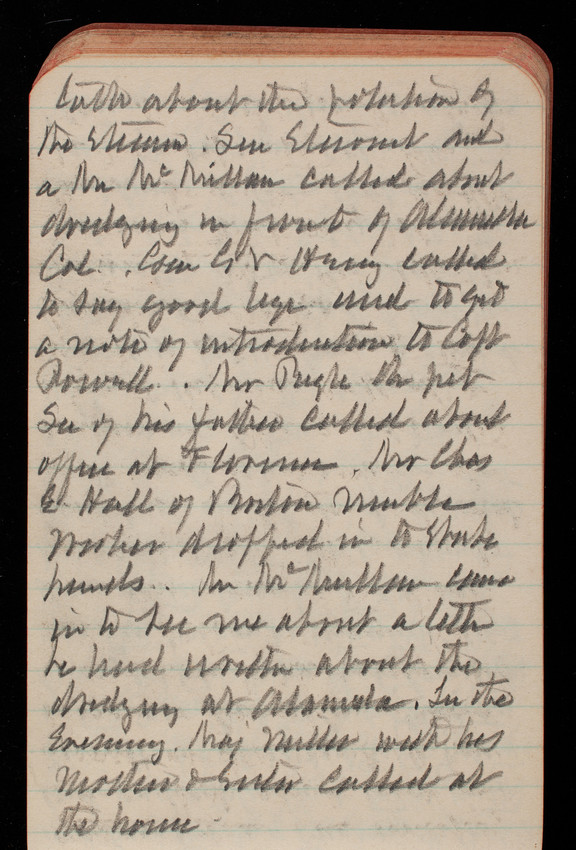 letter about the
the Steam. Sen Stewart and
a Mr McMillan called about
dredging in front of Alameda
Cal. Com G V called
to say good bye and to get
a note of introduction to Capt
Powell. Mr the pvt
Sec of his father called about
office at Florence. Mr Chas
E Hall of Boston marble
worker dropped in to shake
hands. Mr McMullan came
in to see me about a letter
he had written about the
dredging at Alameda. In the
Evening. Maj Miller with his
Mother & Sister called at
the house